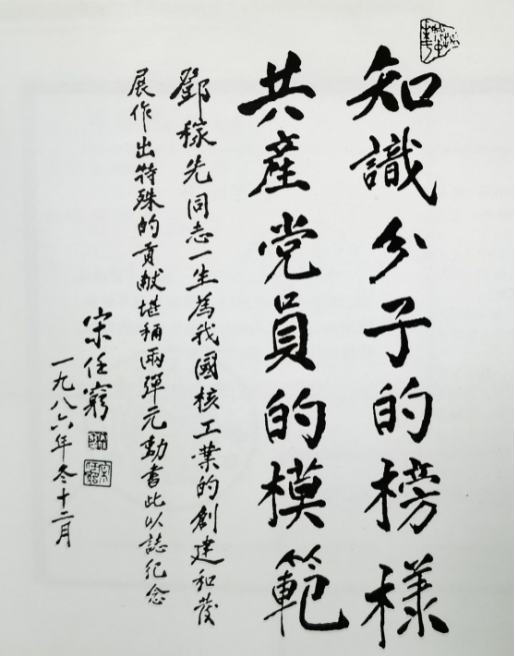 知識分子的榜樣
共產党員的模範
鄧稼先同志一生為我國核工業的創建和發
展作出特殊的貢献堪稱兩彈元勳書此以誌紀念
宋任窮
一九八六年冬十二月